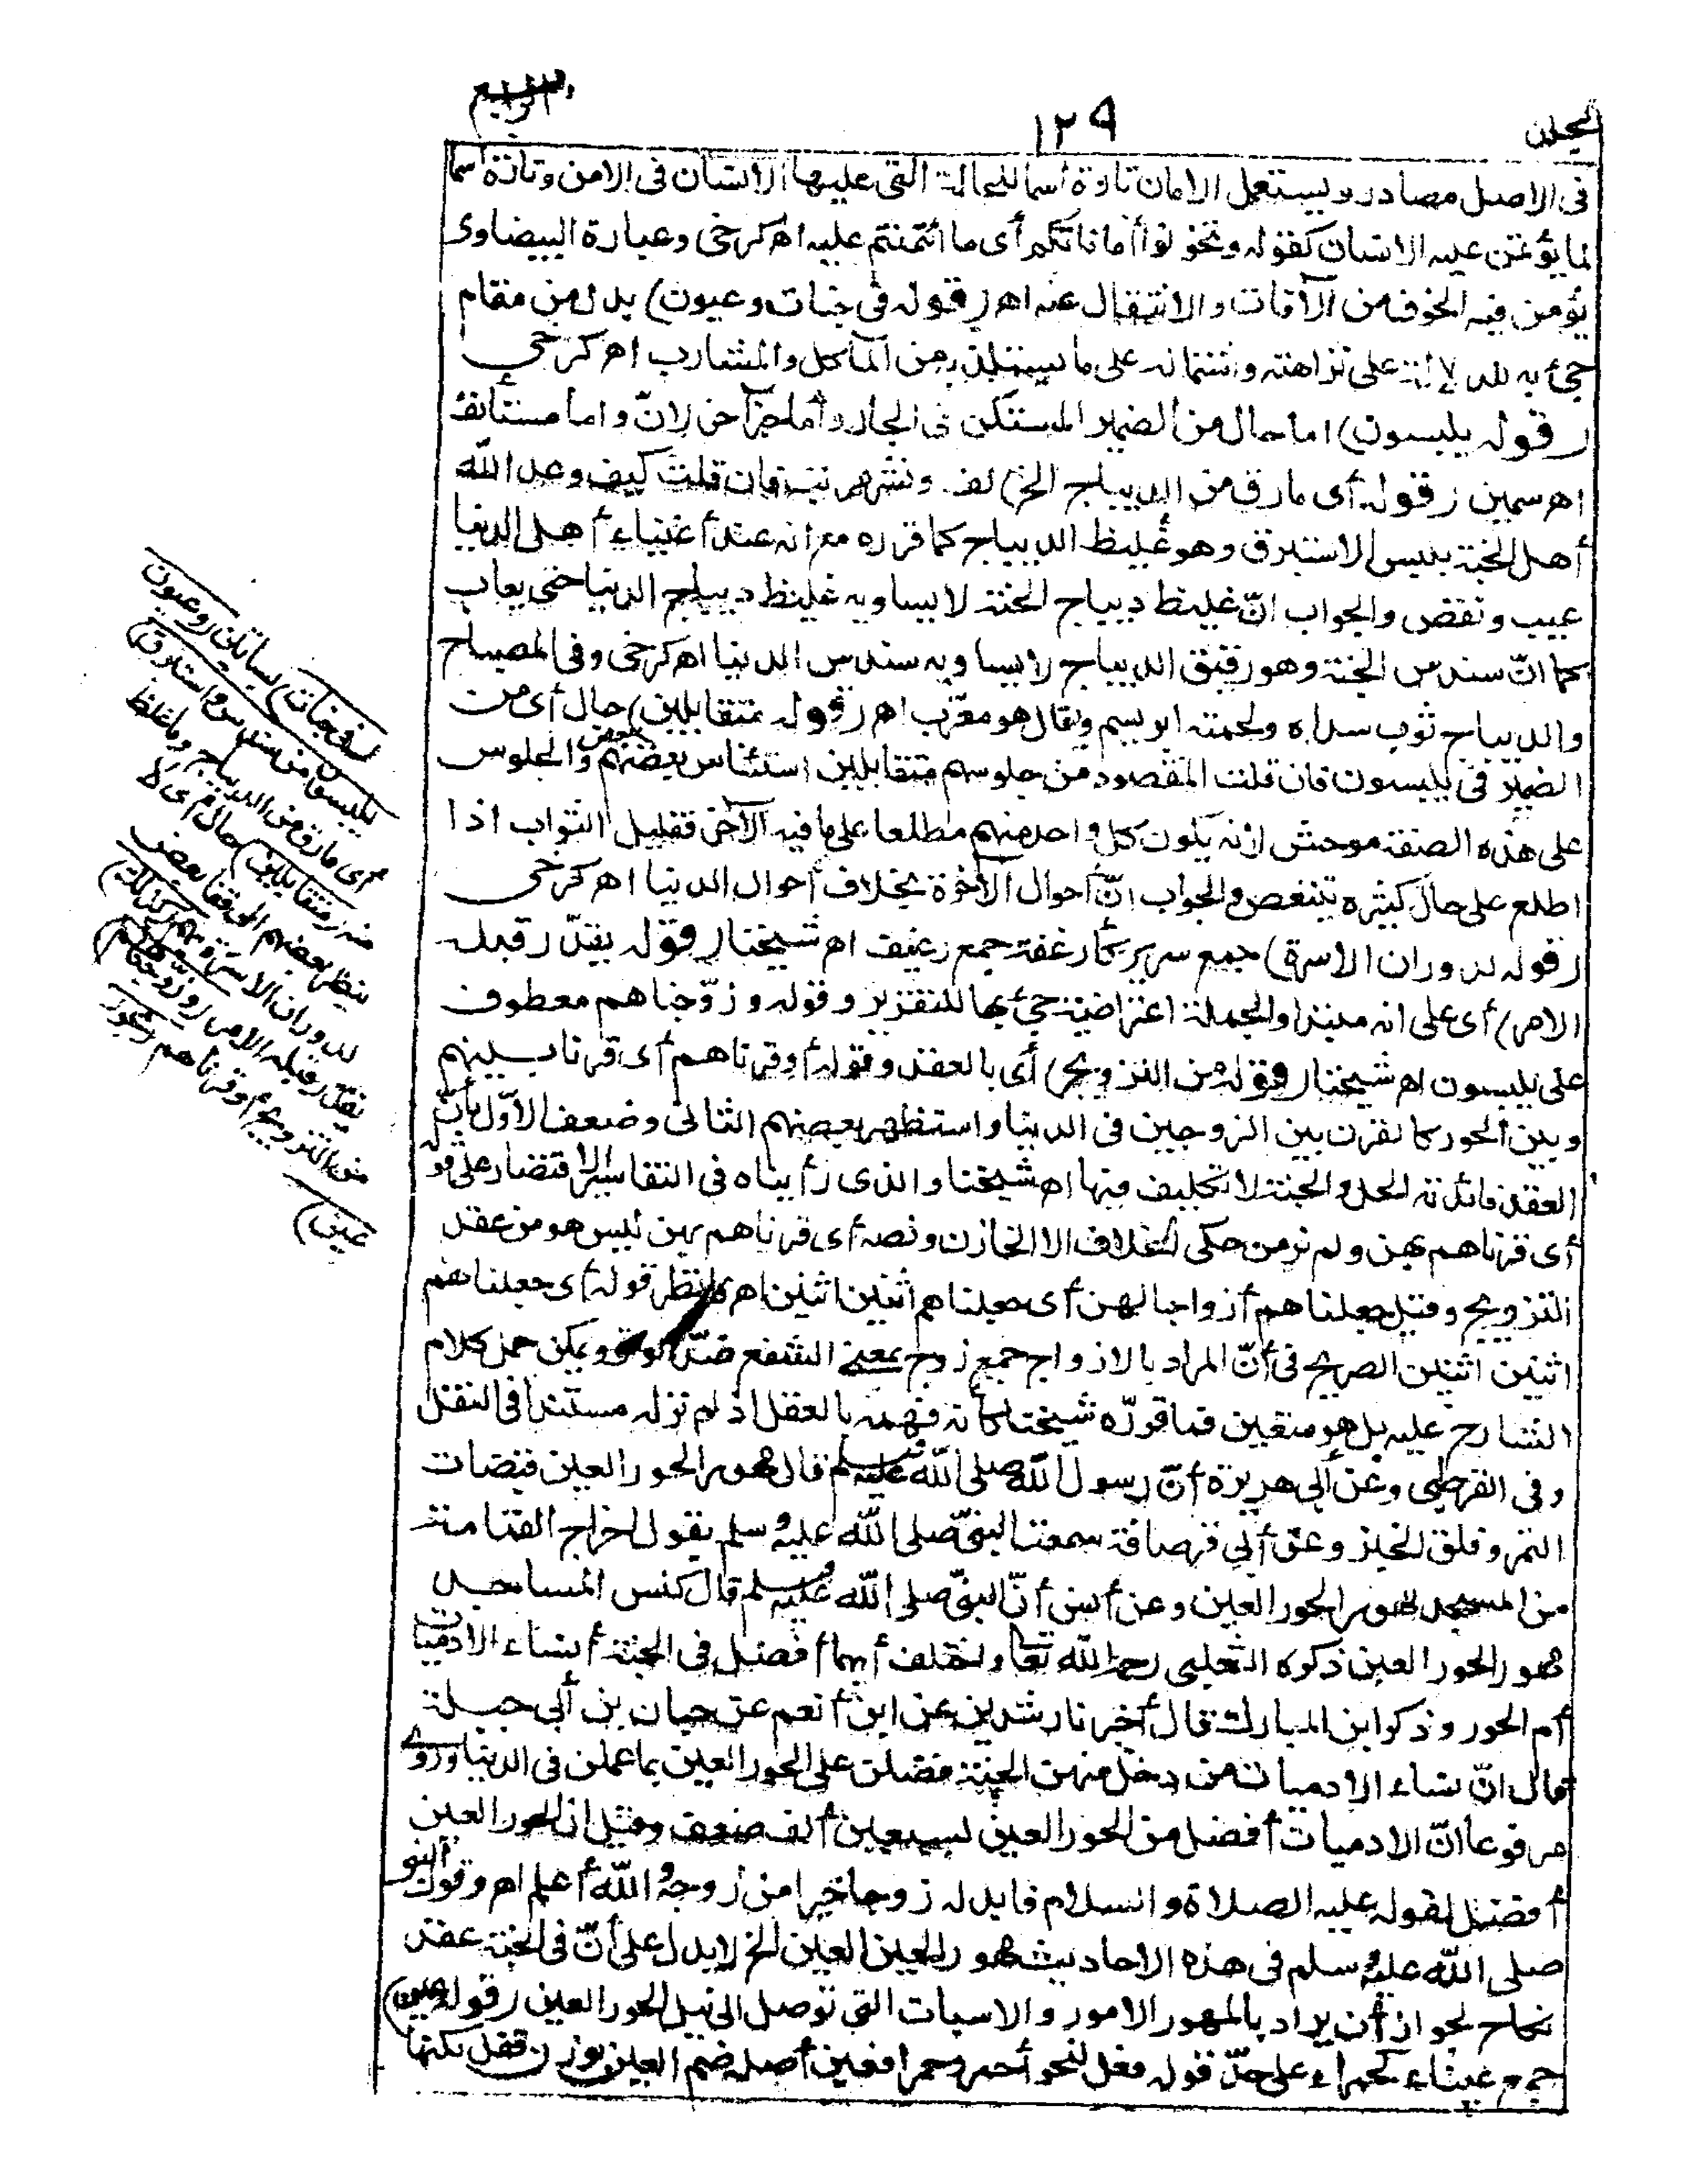 ١٢٩
فى الاصل مصادر ويستعمل الامان تارة اسما للحالة التى عليها الانسان فى الامن وتارة اسما
لما يؤتمن عليه الانسان كقوله وتخونوا أماناتكم أى ما ائتمنتم عليه اهـ كرخى وعبارة البيضاوى
يؤمن فيه الخوف من الآفات والانتقال عنه اهـ (قوله فى جنات وعيون) بدل من مقام
جئ به للدلالة على نزاهته واشتماله على ما يستلذ به من المآكل والمشارب اهـ كرخى
(قوله يلبسون) اما حال من الضمير المستكن فى الجار واما خبر آخر لانّ واما مستأنف
اهـ سمين (قوله أى مارق من الديباج الخ) لف ونشر مرتب فان قلت كيف وعد الله
أهل الجنة بلبس الاستبرق وهو غليظ الديباج كما قرره مع انه عند أغنياء أهل الدنيا
عيب ونقص والجواب انّ غليظ ديباج الجنة لا يساويه غليظ ديباج الدنيا حتى يعاب
كما انّ سندس الجنة وهو رقيق الديباج لا يساويه سندس الدنيا اهـ كرخى وفى المصباح
والديباج ثوب سداه ولحمته ابريسم ويقال هو معرّب اهـ (قوله متقابلين) حال أى من
الضمير فى يلبسون فان قلت المقصود من جلوسهم متقابلين استئناس بعضهم ببعض والجلوس
على هذه الصفة موحش لانه يكون كل واحد منهم مطلعا على ما فيه الآخر فقليل الثواب اذا
اطلع على حال كثيره يتنغص والجواب انّ أحوال الآخرة بخلاف أحوال الدنيا اهـ كرخى
(قوله لدوران الاسرة) جمع سرير كأرغفة جمع رغيف اهـ شيخنا (قوله يقدّر قبله
الامر) أى على انه مبتدا والجملة اعتراضية جئ بها للتقرير وقوله وزوّجناهم معطوف
على يلبسون اهـ شيخنا (قوله من التزويج) أى بالعقد وقوله أو قرناهم أى قرنا بينهم
وبين الحور كما نقرن بين الزوجين فى الدنيا واستظهر بعضهم الثانى وضعف الاوّل بأنّ
العقد فائدته الحل والجنة لا تكليف فيها اهـ شيخنا والذى رأيناه فى التفاسير الاقتصار على قوله
أى قرناهم بهن ولم نر من حكى الخلاف الا الخازن ونصه أى قرناهم بهن ليس هو من عقد
التزويج وقيل جعلناهم أزواجا لهن أى جعلناهم اثنين اثنين اهـ فانظر قوله أى جعلناهم
اثنين اثنين الصريح فى أنّ المراد بالازواج جمع زوج بمعنى الشفع ضدّ الوتر ويمكن حمل كلام
الشارح عليه بل هو متعين فما قرّره شيخنا كأنه فهمه بالعقل اذ لم نر له مستندا فى النقل
وفى القرطبى وعن أبى هريرة أنّ رسول الله صلى الله عليه وسلم قال مهور الحور العين قبضات
التمر وفلق الخبز وعن أبى قرصافة سمعت النبىّ صلى الله عليه وسلم يقول اخراج القمامة
من المسجد مهور الحور العين وعن أنس أنّ النبىّ صلى الله عليه وسلم قال كنس المساجد
مهور الحور العين ذكره الثعلبى رحمه الله تعالى واختلف أيهما أفضل فى الجنة أنساء الادميات
أم الحور وذكر ابن المبارك قال أخبرنا رشدين عن ابن أنعم عن حبان بن أبى جبلة
قال انّ نساء الادميات من دخل منهن الجنة فضلن على الحور العين بما عملن فى الدنيا وروى
مرفوعا انّ الادميات أفضل من الحور العين بسبعين ألف ضعف وقيل ان الحور العين
أفضل لقوله عليه الصلاة والسلام فابدله زوجا خيرا من زوجه والله أعلم اهـ وقول النبى
صلى الله عليه وسلم فى هذه الاحاديث مهور الحور العين الخ لا يدل على أنّ فى الجنة عقد
نكاح لجواز أن يراد بالمهور الامور والاسباب التى توصل الى نيل الحور العين (قوله عين)
جمع عيناء كحمراء على حدّ قوله فعل لنحو أحمر وحمرا فعين أصله ضم العين بوزن قفل لكنها
(فى جنات) بساتين (وعيون
يلبسون من سندس واستبرق)
أى مارق من الديباج وما غلظ
منه (متقابلين) حال أى لا
ينظر بعضهم الى قفا بعض
لدوران الاسرة بهم (كذلك)
يقدّر قبله الامر (وزوّجناهم)
من التزويج أو قرناهم (بحور
عين)